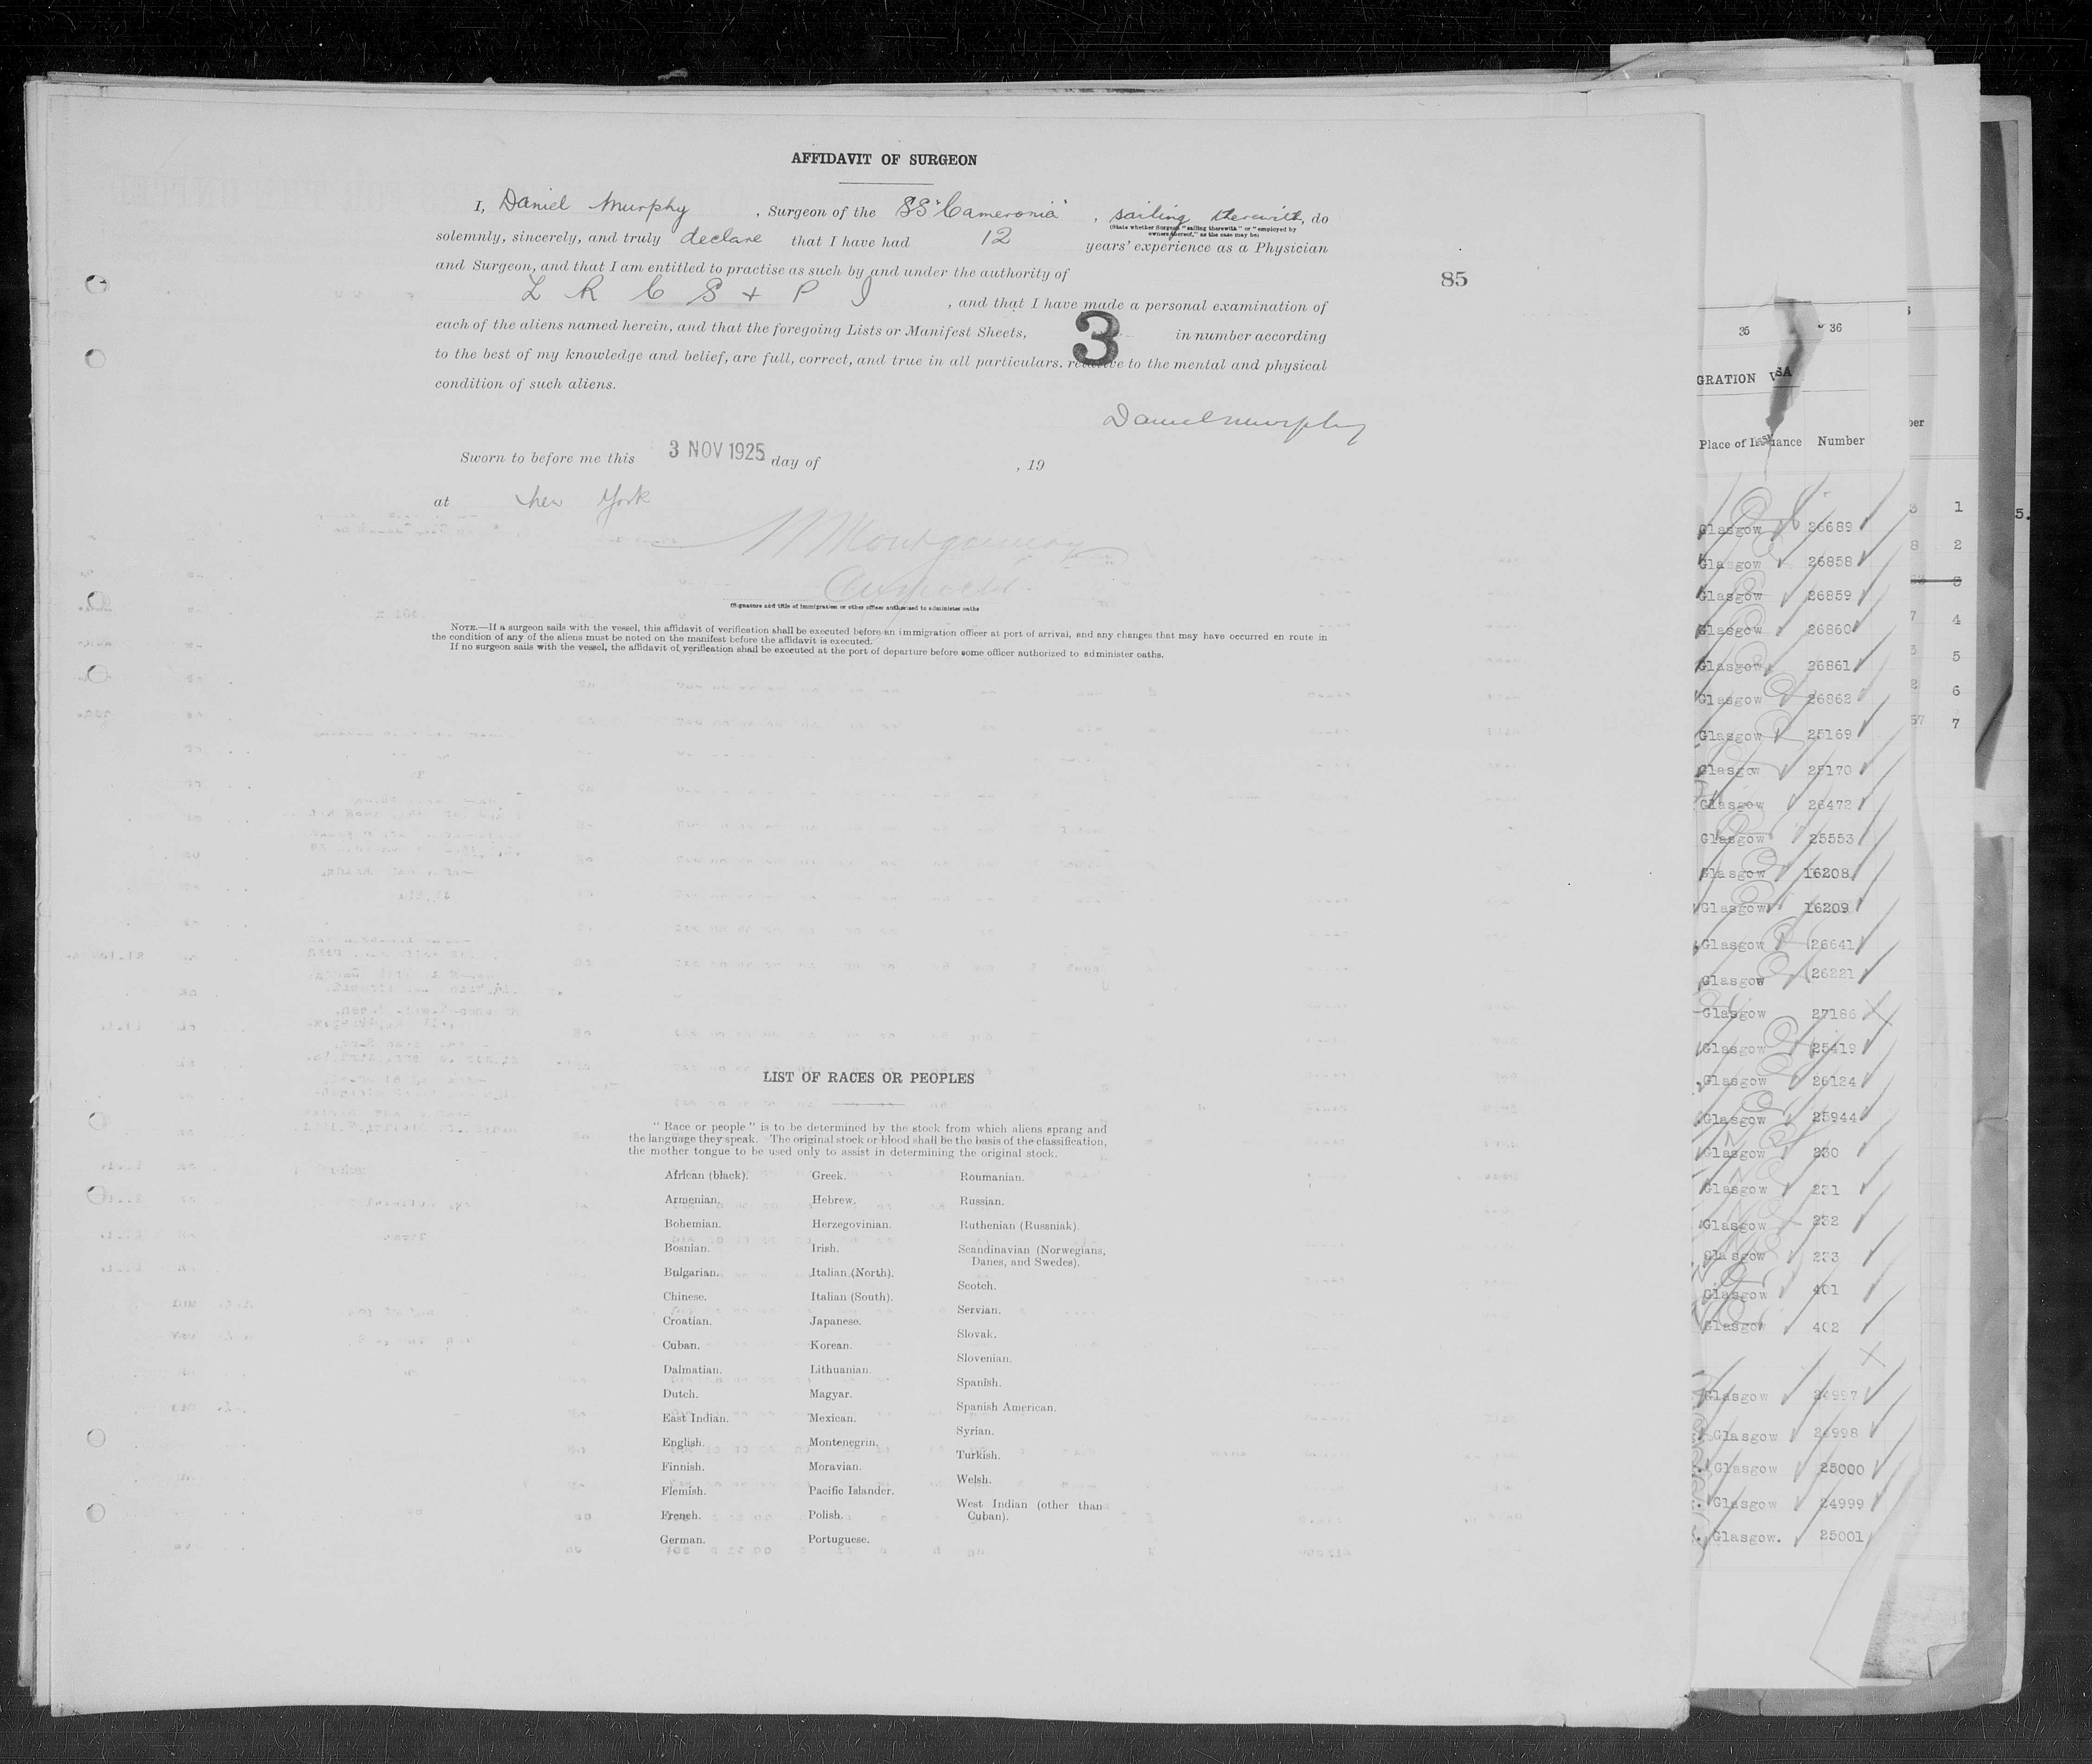 AFFIDAVIT OF SURGEON
I, Daniel Murphy, Surgeon of the SS "Cameronia", sailing therewith, do
(State whether Surgeon "sailing therewith" or "employed by
owners thereof," as the case may be)
solemnly, sincerely, and truly declare that I have had 12 years' experience as a Physician
and Surgeon, and that I am entitled to practise as such by and under the authority of
L R C S + P I, and that I have made a personal examination of
each of the aliens named herein, and that the foregoing Lists or Manifest Sheets, 3 in number according
to the best of my knowledge and belief, are full, correct, and true in all particulars. relative to the mental and physical
condition of such aliens.
85
Daniel Murphy
Sworn to before me this 3 NOV 1925 day of , 19
at New York
Montgomery
(Signature and title of immigration or other officer authorised to administer oaths
NOTE.—If a surgeon sails with the vessel, this affidavit of verification shall be executed before an immigration officer at port of arrival, and any changes that may have occurred en route in
the condition of any of the aliens must be noted on the manifest before the affidavit is executed.
If no surgeon sails with the vessel, the affidavit of verification shall be executed at the port of departure before some officer authorized to administer oaths.
LIST OF RACES OR PEOPLES
"Race or people" is to be determined by the stock from which aliens sprang and
the language they speak. The original stock or blood shall be the basis of the classification,
the mother tongue to be used only to assist in determining the original stock.
African (black).
Armenian.
Bohemian.
Bosnian.
Bulgarian.
Chinese.
Croatian.
Cuban.
Dalmatian.
Dutch.
East Indian.
English.
Finnish.
Flemish.
French.
German.
Greek.
Hebrew.
Herzegovinian.
Irish.
Italian (North).
Italian (South).
Japanese.
Korean.
Lithuanian.
Magyar.
Mexican.
Montenegrin.
Moravian.
Pacific Islander.
Polish.
Portuguese.
Roumanian.
Russian.
Ruthenian (Russniak).
Scandinavian (Norwegians,
Danes, and Swedes).
Scotch.
Servian.
Slovak.
Slovenian.
Spanish.
Spanish American.
Syrian.
Turkish.
Welsh.
West Indian (other than
Cuban).
35 36
GRATION
Place of Issuance Number
Glasgow 26689
Glasgow 26858
Glasgow 26859
Glasgow 26860
Glasgow 26861
Glasgow 26862
Glasgow 25169
Glasgow 25170
Glasgow 26472
Glasgow 25553
Glasgow 16208
Glasgow 16209
Glasgow 26641
Glasgow 26221
Glasgow 27186
Glasgow 25419
Glasgow 26124
Glasgow 25944
Glasgow 230
Glasgow 231
Glasgow 232
Glasgow 233
Glasgow 401
Glasgow 402
Glasgow 24997
Glasgow 24998
Glasgow 25000
Glasgow 24999
Glasgow. 25001
1
2
3
4
5
6
7
5.